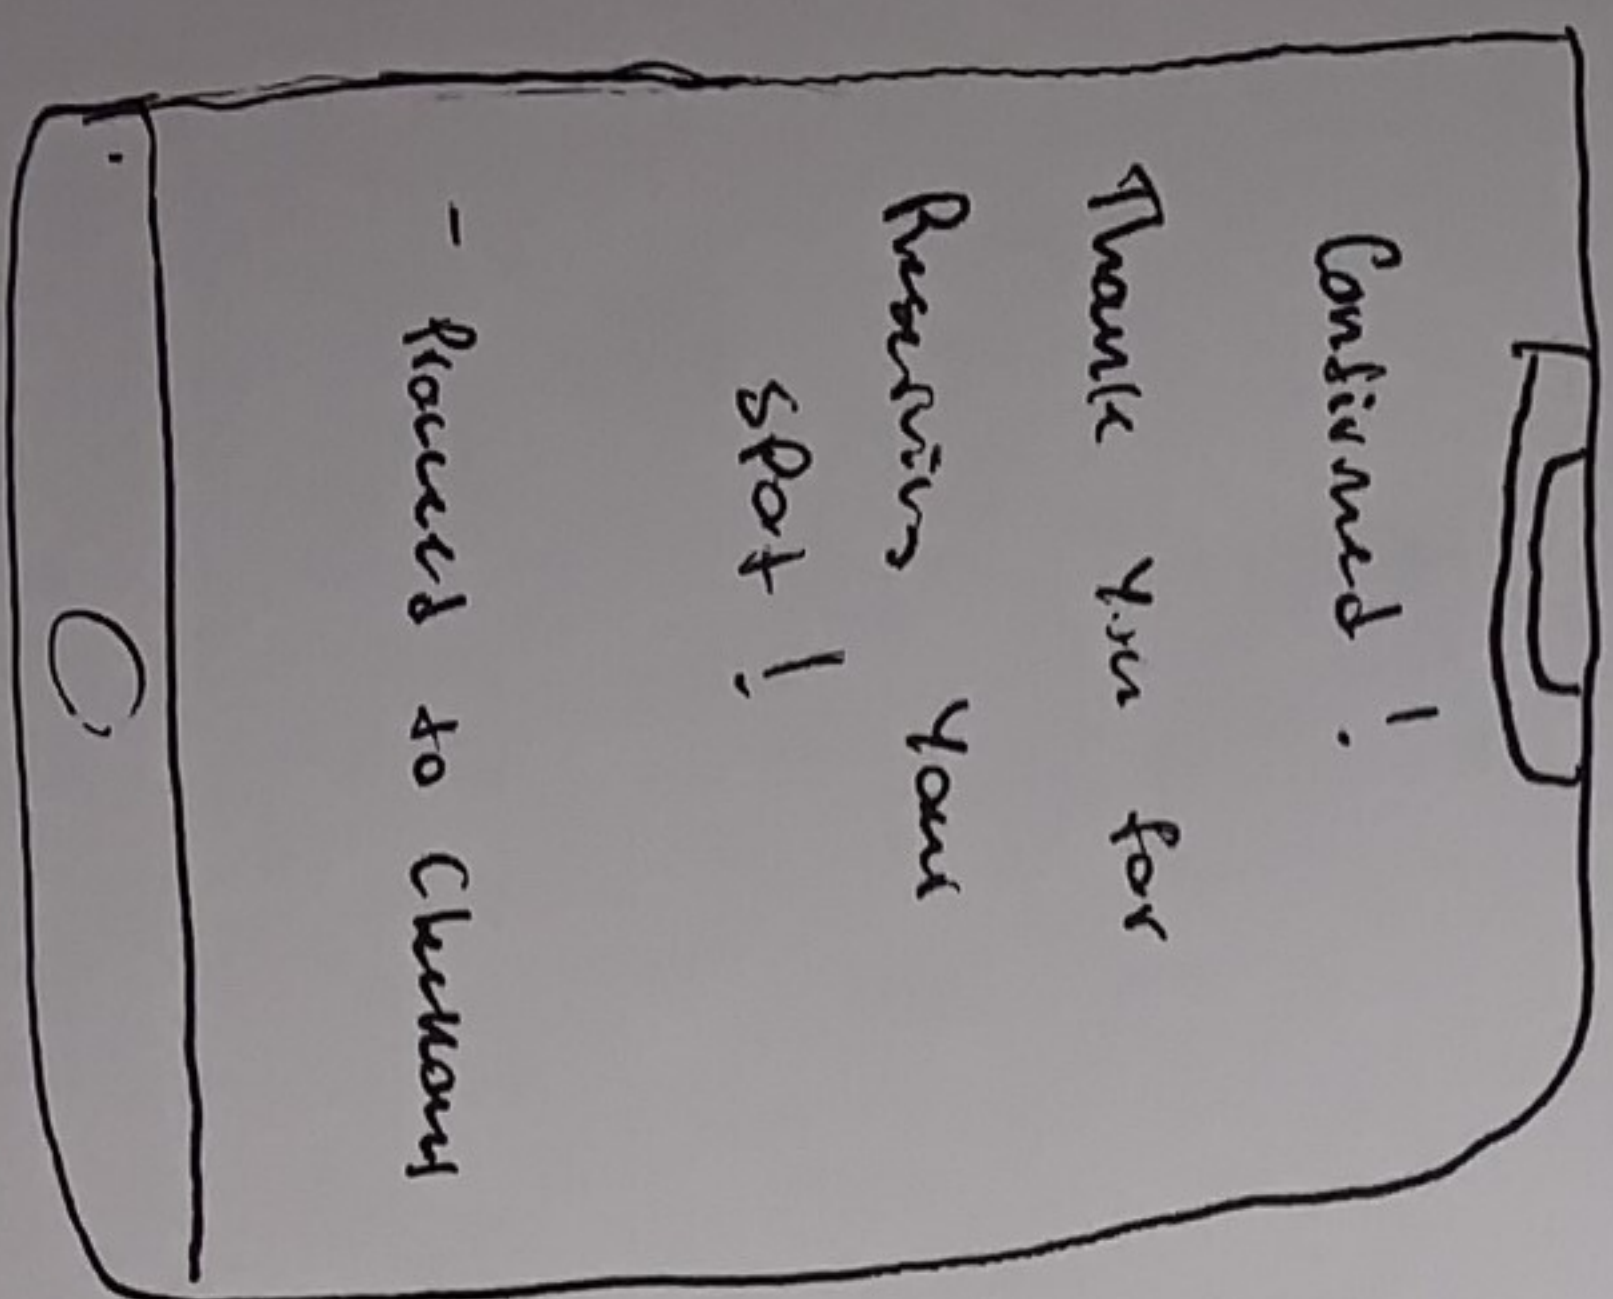 Confirmed!
Thank You for
Reserving Your
SPot!
- Proceed to Checkout